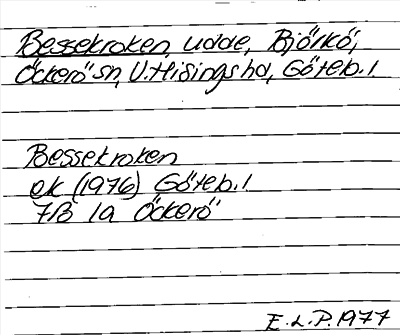 Bessekroken, udde, Björkö,
Öckerö sn, V. Hisings hd, Göteb. l
Bessekroken
ek (1976) Göteb. l
7B 1a Öckerö
E.L.P. 1977